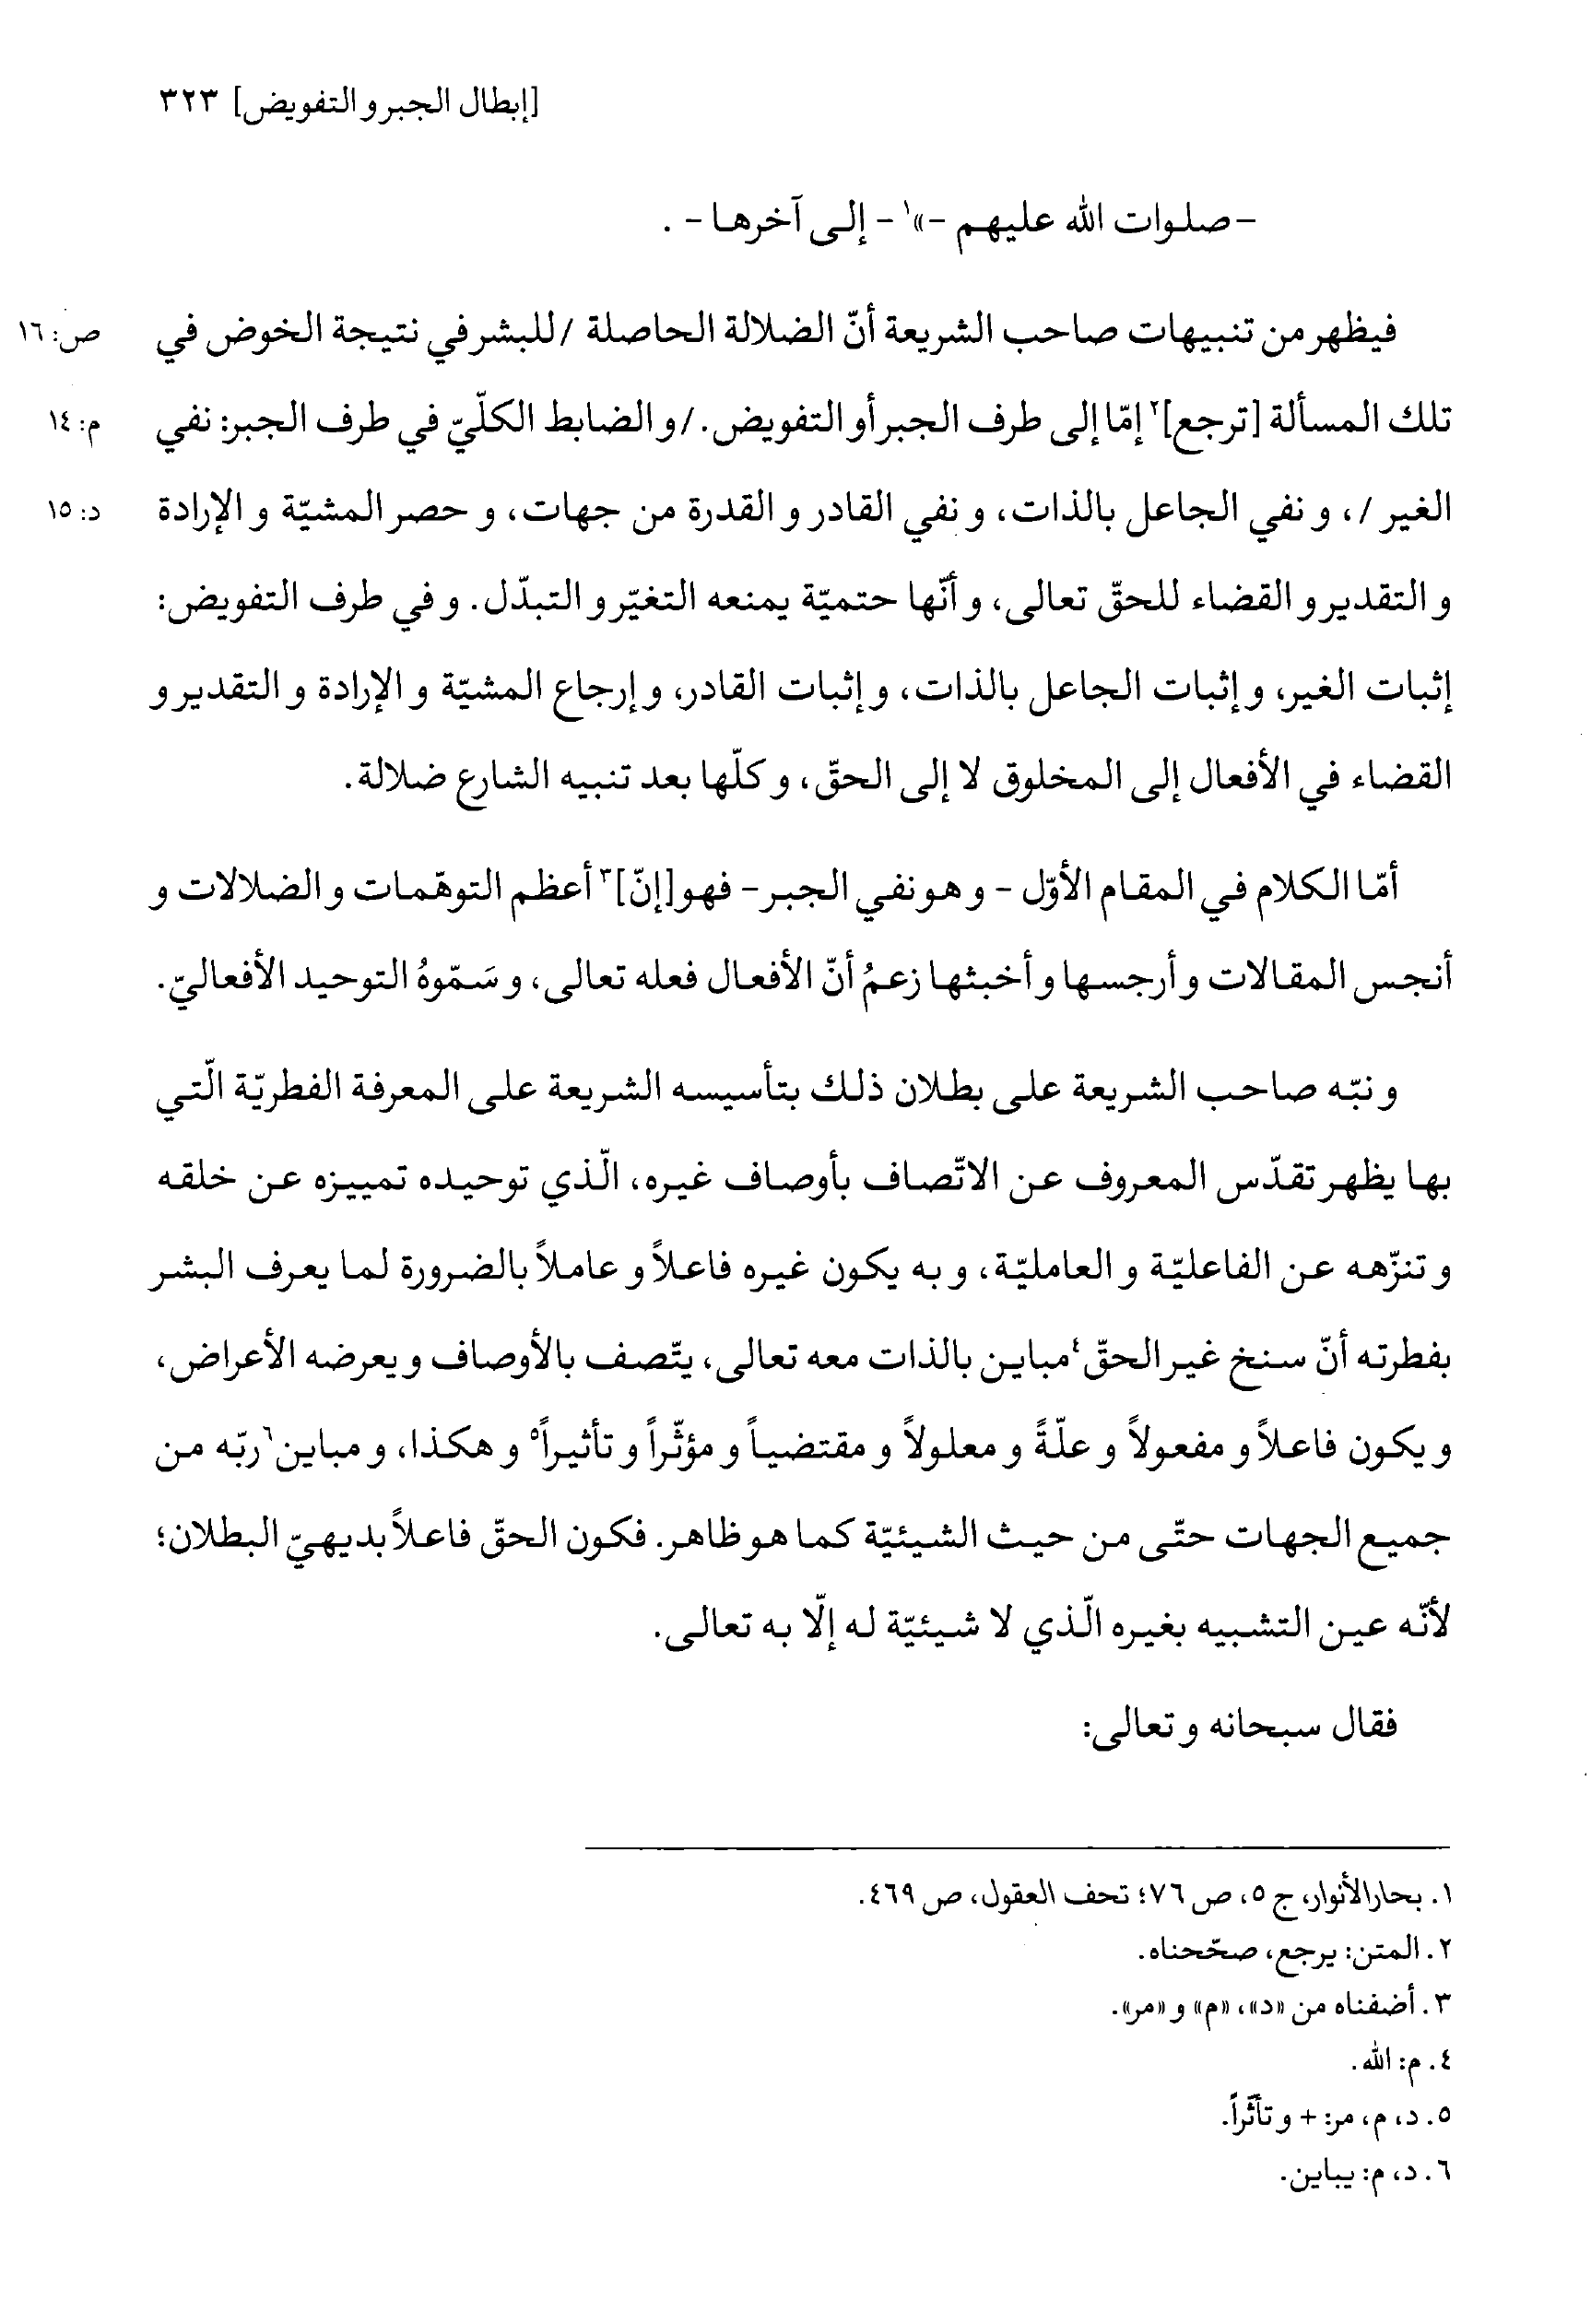 [إبطال الجبر و التفويض] ٣٢٣
- صلوات الله عليهم -»١ - إلى آخرها - .
فيظهر من تنبيهات صاحب الشريعة أنّ الضلالة الحاصلة /للبشر في نتيجة الخوض في ص: ١٦
تلك المسألة [ترجع]٢ إمّا إلى طرف الجبر أو التفويض. /و الضابط الكلّيّ في طرف الجبر: نفي م: ١٤
الغير /، و نفي الجاعل بالذات، و نفي القادر و القدرة من جهات، و حصر المشيّة و الإرادة د: ١٥
و التقدير و القضاء للحقّ تعالى، و أنّها حتميّة يمنعه التغيّر و التبدّل. و في طرف التفويض:
إثبات الغير، و إثبات الجاعل بالذات، و إثبات القادر، و إرجاع المشيّة و الإرادة و التقدير و
القضاء في الأفعال إلى المخلوق لا إلى الحقّ، و كلّها بعد تنبيه الشارع ضلالة.
أمّا الكلام في المقام الأوّل - و هو نفي الجبر - فهو [إنّ]٣ أعظم التوهّمات و الضلالات و
أنجس المقالات و أرجسها و أخبثها زعمُ أنّ الأفعال فعله تعالى، و سَمّوهُ التوحيد الأفعاليّ.
و نبّه صاحب الشريعة على بطلان ذلك بتأسيسه الشريعة على المعرفة الفطريّة الّتي
بها يظهر تقدّس المعروف عن الاتّصاف بأوصاف غيره، الّذي توحيده تمييزه عن خلقه
و تنزّهه عن الفاعليّة و العامليّة، و به يكون غيره فاعلاً و عاملاً بالضرورة لما يعرف البشر
بفطرته أنّ سنخ غير الحقّ٤ مباين بالذات معه تعالى، يتّصف بالأوصاف و يعرضه الأعراض،
و يكون فاعلاً و مفعولاً و علّةً و معلولاً و مقتضياً و مؤثّراً و تأثيراً٥ و هكذا، و مباين٦ ربّه من
جميع الجهات حتّى من حيث الشيئيّة كما هو ظاهر. فكون الحقّ فاعلاً بديهيّ البطلان؛
لأنّه عين التشبيه بغيره الّذي لا شيئيّة له إلّا به تعالى.
فقال سبحانه و تعالى:
١. بحار الأنوار، ج ٥، ص ٧٦؛ تحف العقول، ص ٤٦٩.
٢. المتن: يرجع، صحّحناه.
٣. أضفناه من «د»، «م» و «مر».
٤. م: الله.
٥. د، م، مر: + و تأثّراً.
٦. د، م: يباين.